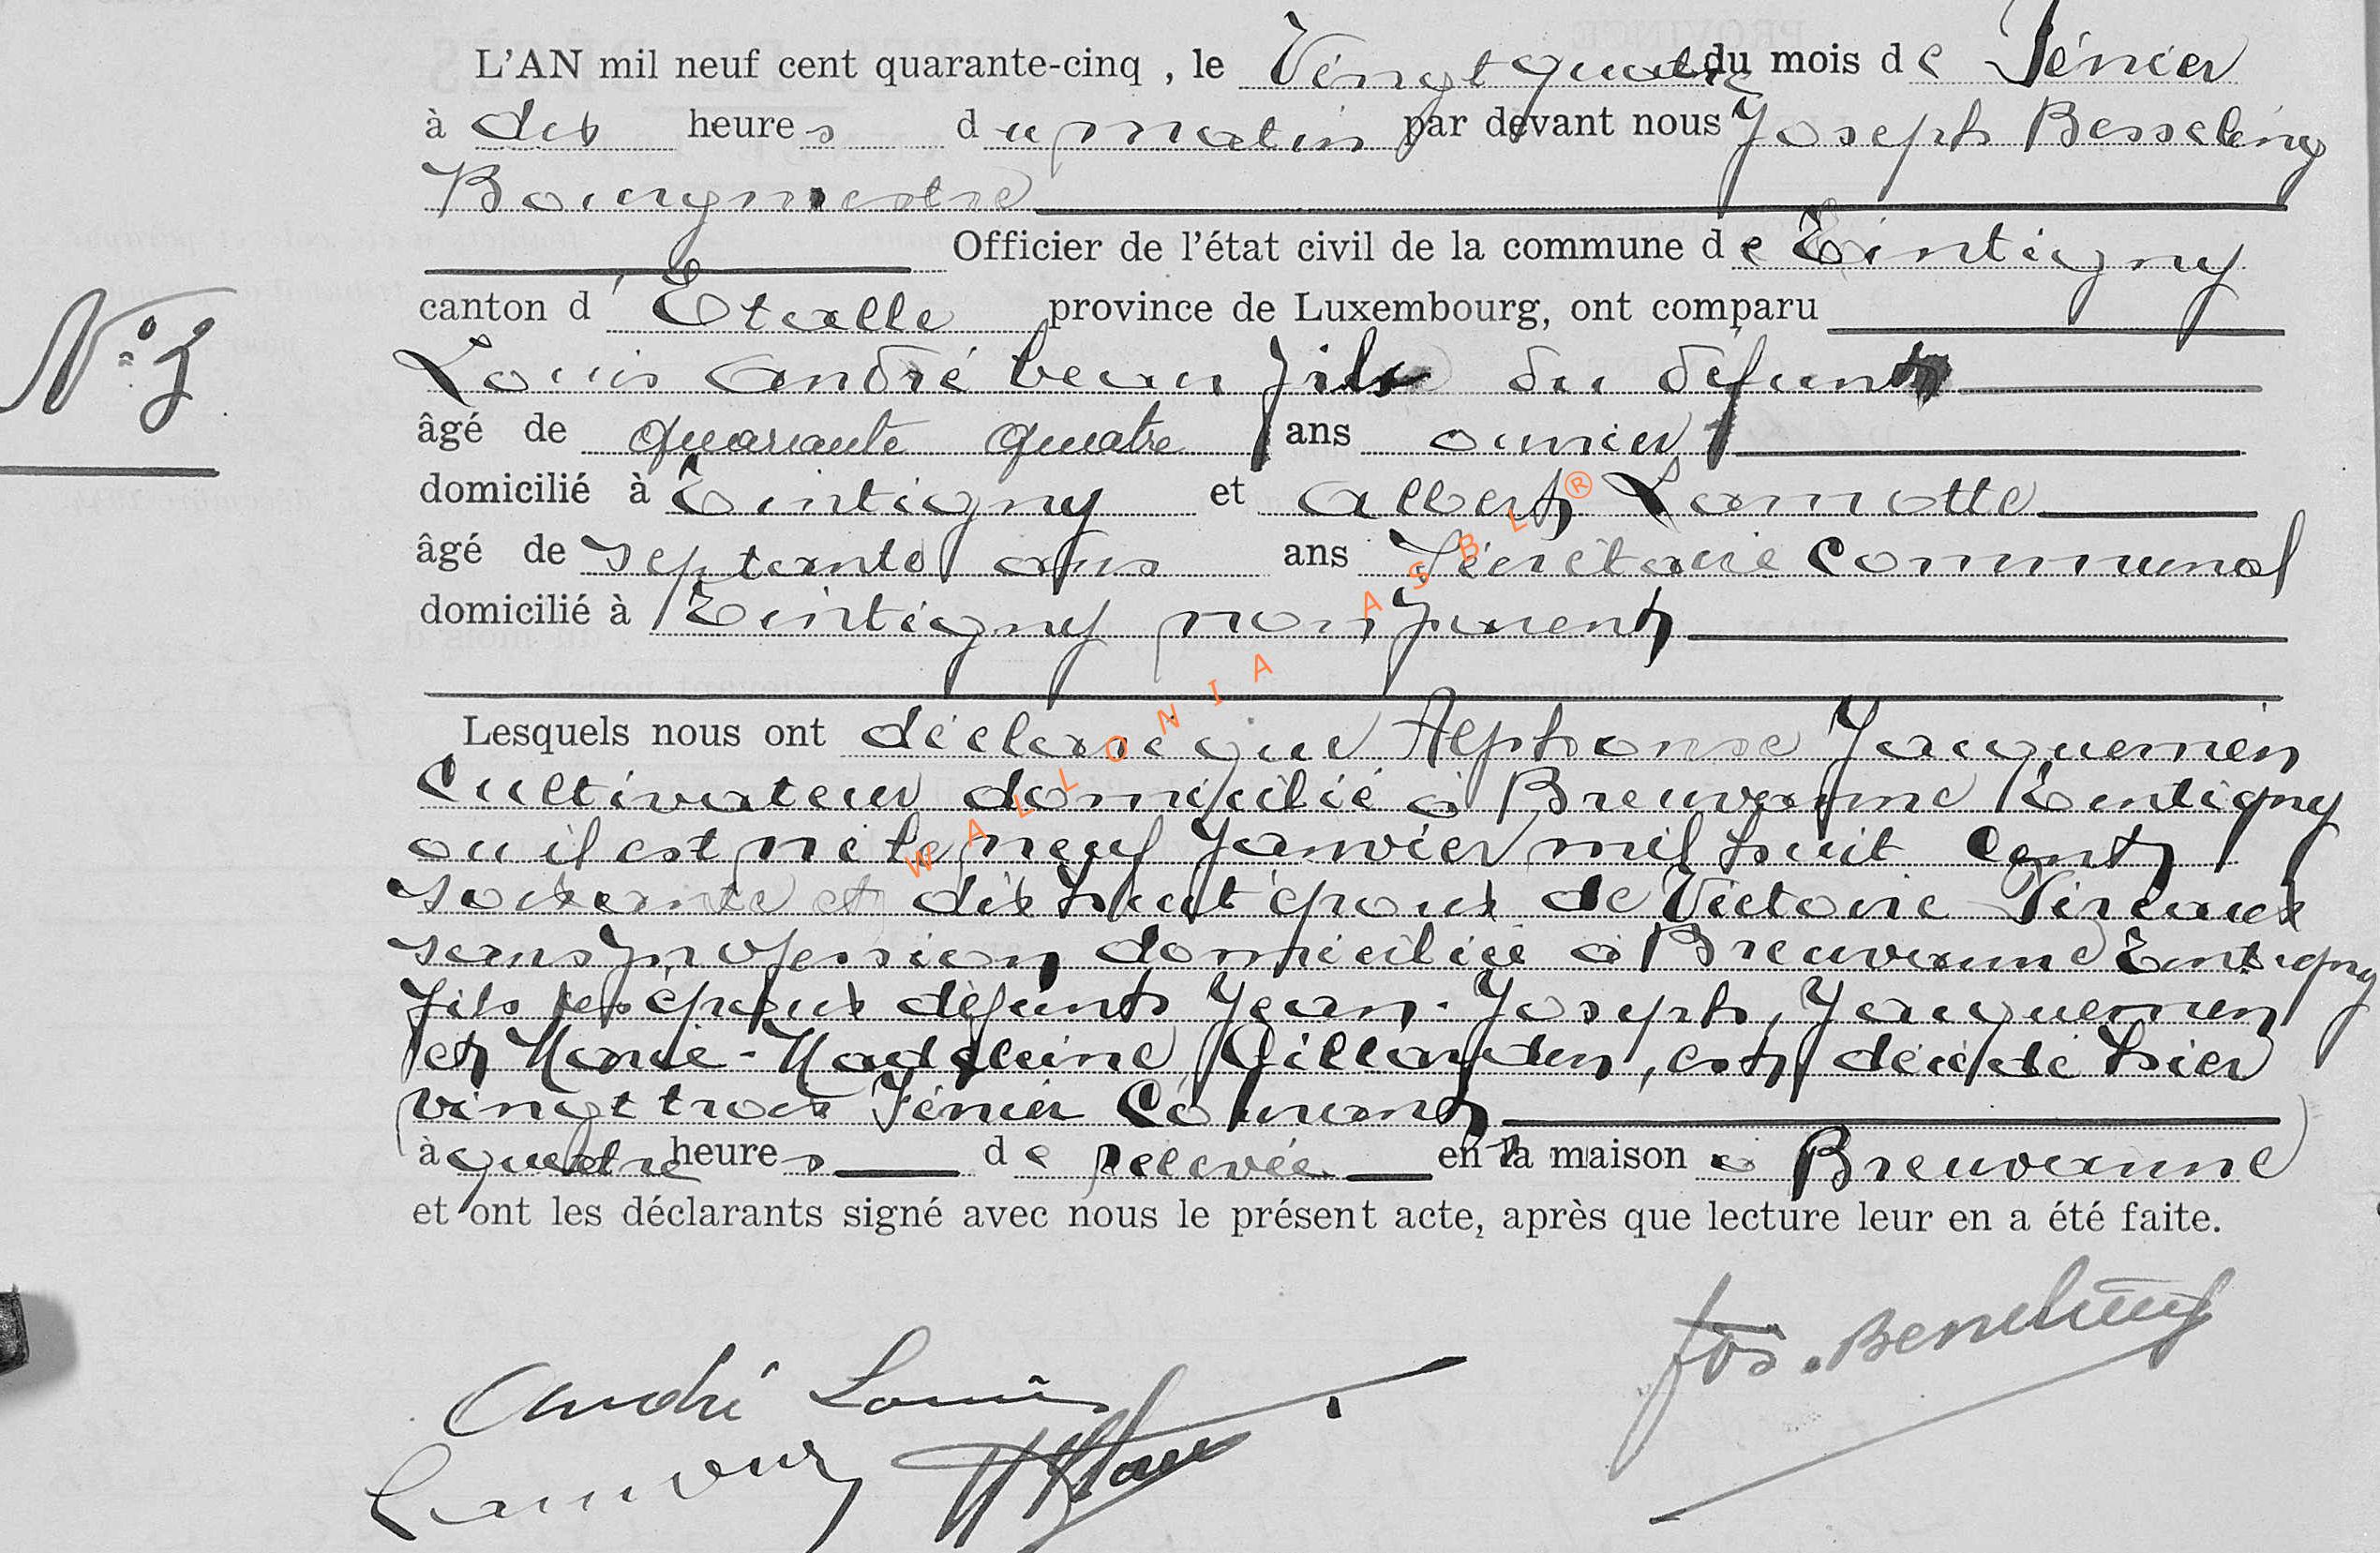 L'AN mil neuf cent quarante-cinq , le Vingt quatre du mois de Février
à dix heures du matin par devant nous Joseph Besseling
Bourgmestre
Officier de l'état civil de la commune de Tintigny
canton d'Etalle province de Luxembourg, ont comparu
N° 3
Louis André beau fils du défunt
âgé de quarante quatre ans ouvrier
domicilié à Tintigny et Albert Lamotte
âgé de septante ans ans Secrétaire communal
domicilié à Tintigny non parent
Lesquels nous ont déclaré que Alphonse Jacquemin
cultivateur domicilié à Breuvanne Tintigny
ou il est né le neuf Janvier mil huit cent
soixante et dix huit époux de Victoire Pireaux
sans profession domiciliée à Breuvanne Tintigny
fils des époux défunts Jean-Joseph, Jacquemin
et Marie-Madeleine Gillardin, est décédé hier
vingt trois Février Courant
à quatre heures de relevée en sa maison à Breuvanne
et ont les déclarants signé avec nous le présent acte, après que lecture leur en a été faite.
WALLONIA ASBL ®
Jos. Besseling
André Louis